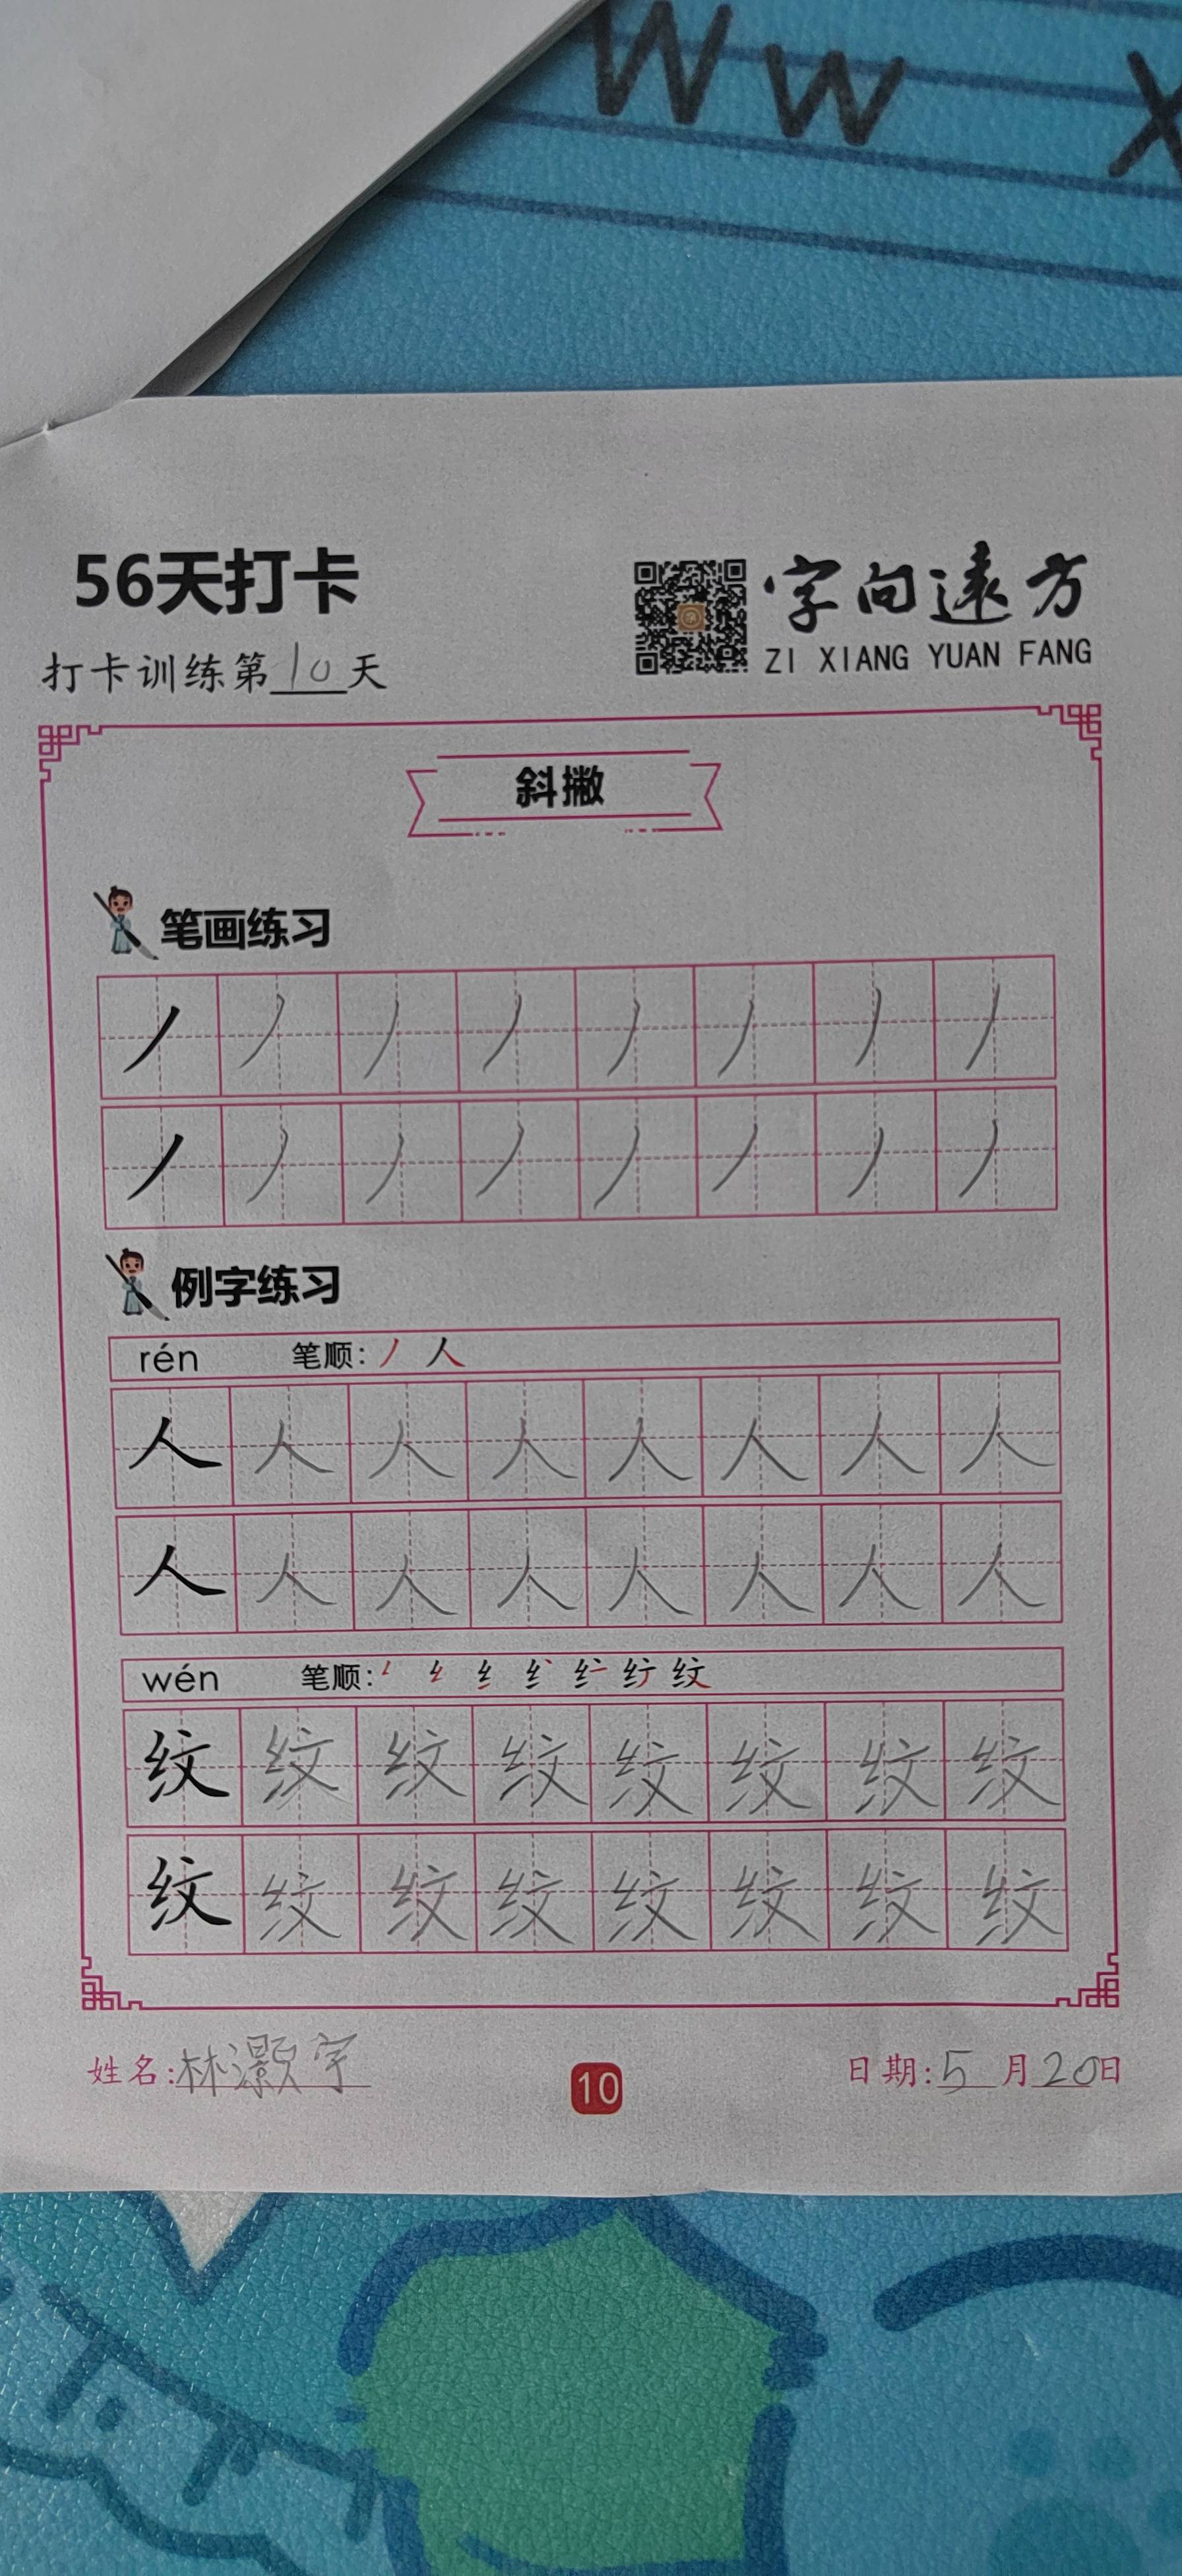 Ww X
56天打卡
打卡训练第10天
字向遠方
ZI XIANG YUAN FANG
斜撇
笔画练习
丿丿丿丿丿丿丿丿
丿丿丿丿丿丿丿丿
例字练习
rén 笔顺: 丿 人
人人人人人人人人
人人人人人人人人
wén 笔顺:
纹纹纹纹纹纹纹纹
纹纹纹纹纹纹纹纹
姓名:林灏宇
10
日期:5月20日